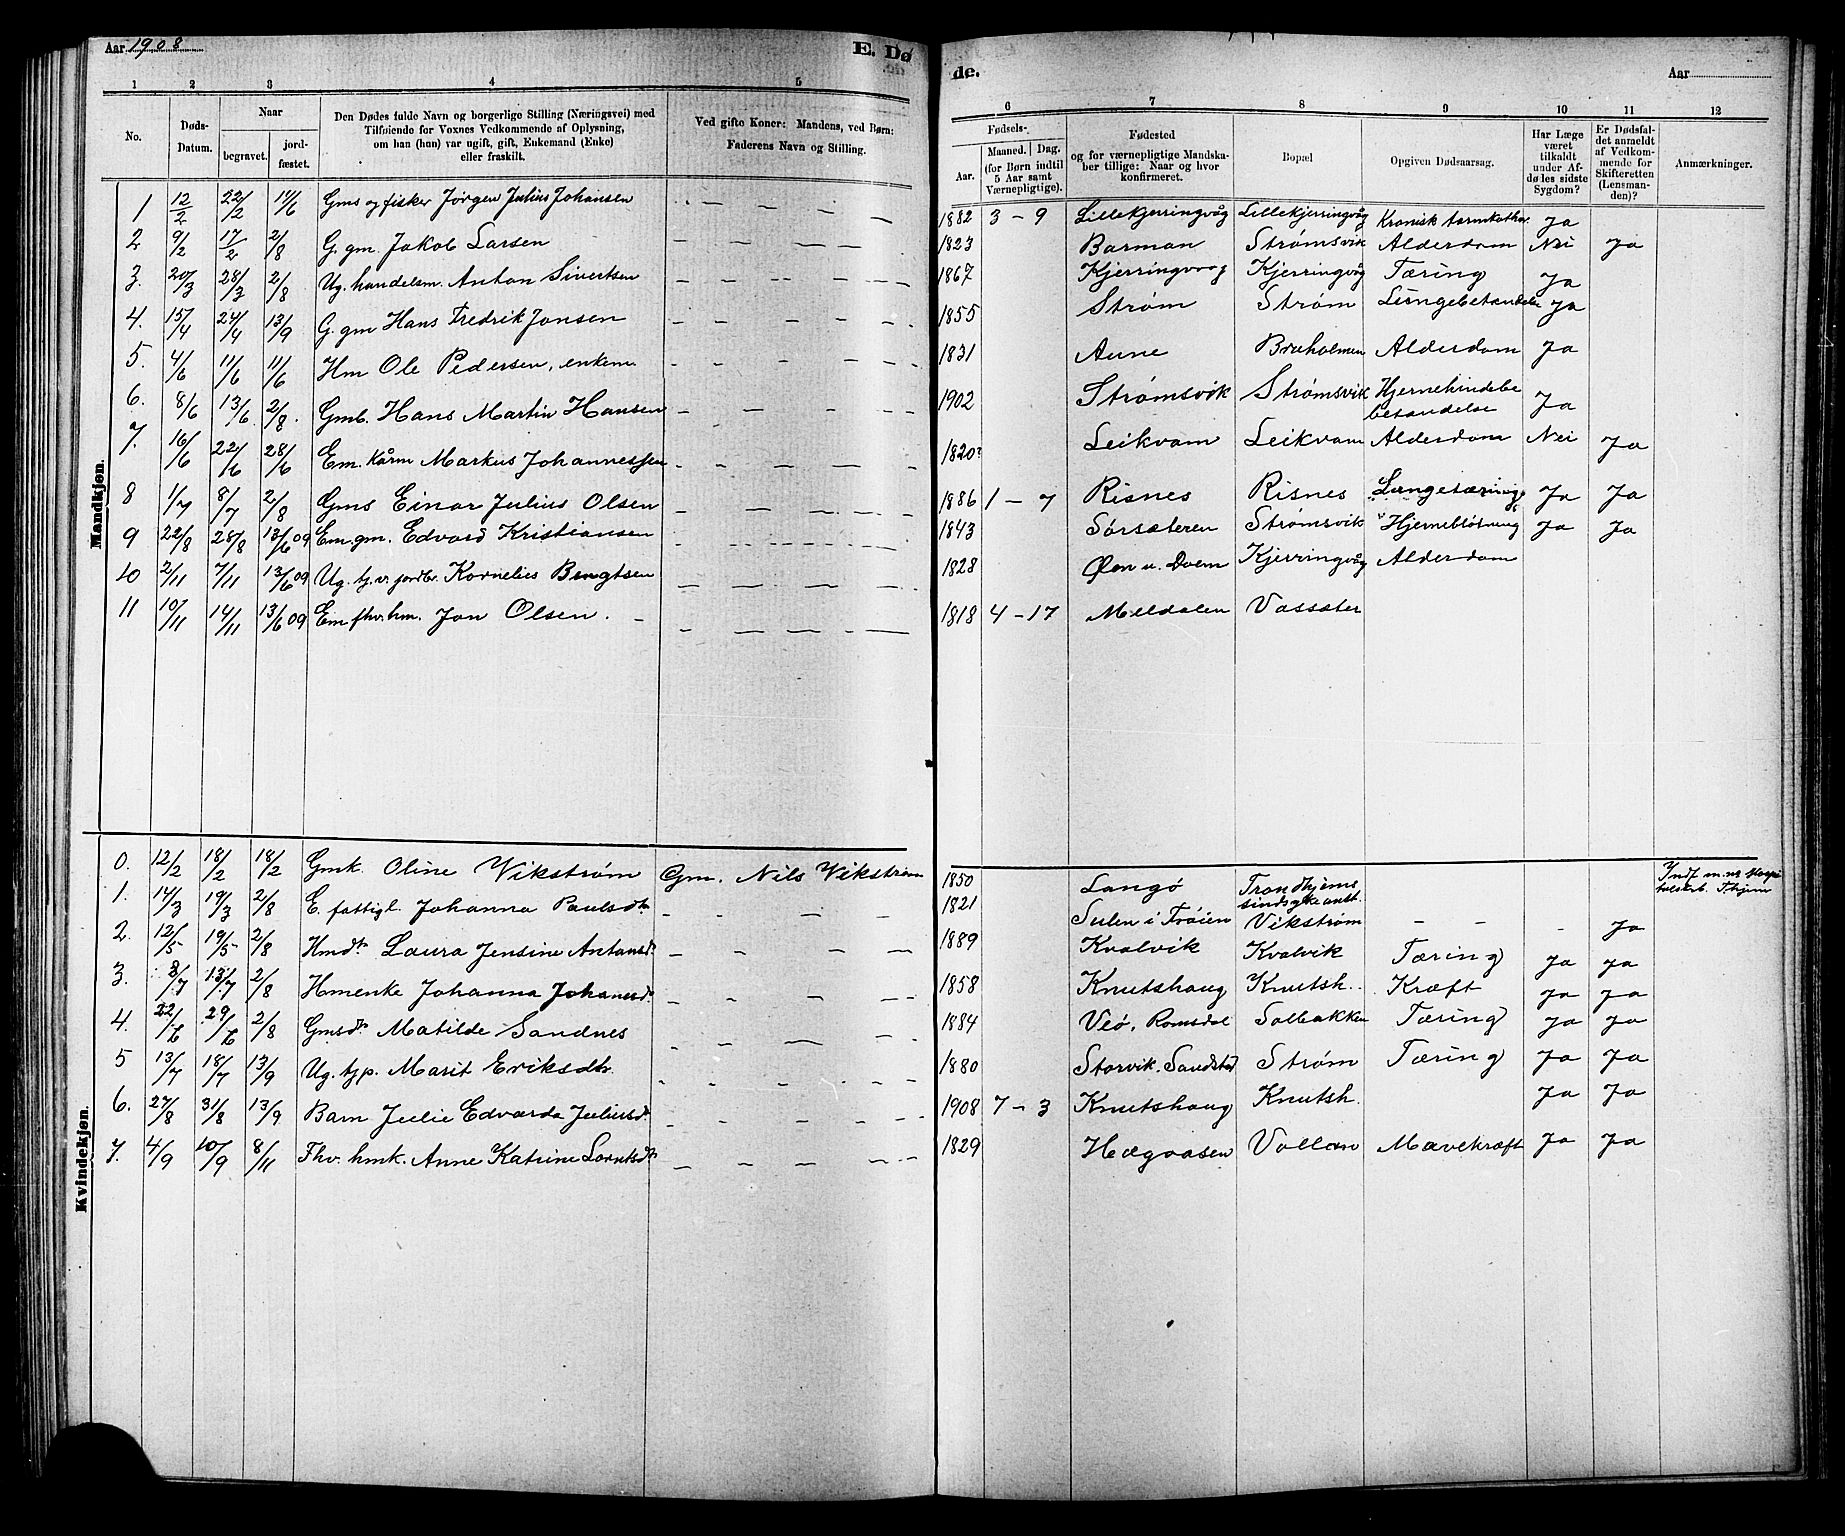 Aar 1908
E. Dø
de.
Aar
1 2 3 4 5 6 7 8 9 10 11 12
No.
Døds-Datum.
Naar
begravet.
jord-fæstet.
Den Dødes fulde Navn og borgerlige Stilling (Næringsvei) med
Tilføiende for Voxnes Vedkommende af Oplysning,
om han (hun) var ugift, gift, Enkemand (Enke)
eller fraskilt.
Ved gifte Koner: Mandens, ved Børn:
Faderens Navn og Stilling.
Fødsels-
Aar.
Maaned. Dag.
(for Børn indtil
5 Aar samt
Værnepligtige).
Fødested
og for værnepligtige Mandska-
ber tillige: Naar og hvor
konfirmeret.
Bopæl
Opgiven Dødsaarsag.
Har Læge
været
tilkaldt
under Af-
dødes sidste
Sygdom?
Er Dødsfal-
det anmeldt
af Vedkom-
mende for
Skifteretten
(Lensman-
den)?
Anmærkninger.
Mandkjøn.
1 12/2 22/2 11/6 Gms og fisker Jørgen Julius Johansen — — — — 1882 3 - 9 Lillekjerringvåg Lillekjerringvåg Kronisk tarmkathar Ja
2 9/2 17/2 2/8 G. gm. Jakob Larsen — — — — 1823 Barman Strømsvik Alderdom Nei Ja
3. 20/3 28/3 2/8 Ug. handelsm. Anton Sivertsen — — — — 1867 Kjerringvaag Kjerringvåg Tæring Ja
4. 15/4 24/4 13/9 G. gm Hans Fredrik Jonsen — — — — 1855 Strøm Strøm Lungebetændelse Ja
5. 4/6 11/6 11/6 Hm Ole Pedersen, enkem. — — — — 1831 Aune Bruholmen Alderdom Ja
6. 8/6 13/6. 2/8. Gmb. Hans Martin Hansen — — — — 1902 Strømsvik Strømsvik Hjernehindebe
betændelse Ja
7. 16/6 22/6 28/6 Em. kårm Markus Johannessen — — — — 1820? Leikvam Leikvam Alderdom Nei Ja
8 1/7 8/7 2/8 Gms Einar Julius Olsen — — — — 1886 1 - 7 Risnes Risnes Lungetæring Ja Ja
9 22/8 28/8 13/6 09 Em. gm. Edvard Kristiansen — — — — 1843 Sørsæteren Strømsvik Hjerneblødning Ja Ja
10 2/11 7/11 13/6 09 Ug. tj. v. jordbr. Kornelius Bengtsen — — — — 1828 Øen u. Dvem Kjerringvåg Alderdom
11 10/11 14/11 13/6 09 Em fhv. hm. Jon Olsen. — — — — 1818 4 - 17 Meldalen Vassæter
Kvindekjøn.
0. 12/2 18/2 18/2 Gmk. Oline Vikstrøm Gm. Nils Vikstrøm 1850 Langø Trondhjems
sindsykeanst. Indf. m. nr Hospi
talskb. T.hjem
1. 14/3 19/3 2/8 E. fattigl. Johanna Paulsdtr — — — — 1821 Sulen i Frøien Vikstrøm — — — Ja
2. 12/5 19/5 2/8 Hmdtr Laura Jensine Antonsdr — — — — 1889 Kvalvik Kvalvik Tæring Ja Ja
3. 8/7 13/7 2/8 Hmenke Johanna Johansdr. — — — — 1858 Knutshaug Knutsh.. Kræft Ja Ja
4. 22/6 29/6 2/8 Gmsdtr Matilde Sandnes — — — — 1884 Veø, Romsdal Solbakken Tæring Ja Ja
5 13/7 18/7 13/9 Ug. tjp. Marit Eriksdtr. — — — — 1880 Storvik, Sandstad Strøm Tæring Ja Ja
6. 27/8 31/8 13/9 Barn Julie Edvarda Juliusdr. — — — — 1908 7 - 3 Knutshaug Knutsh. Ja Ja
7. 4/9 10/9 8/11 Fhv. hmk. Anne Katrine Lorntsdtr — — — — 1829 Hægaasen Vollan Mavekræft Ja Ja